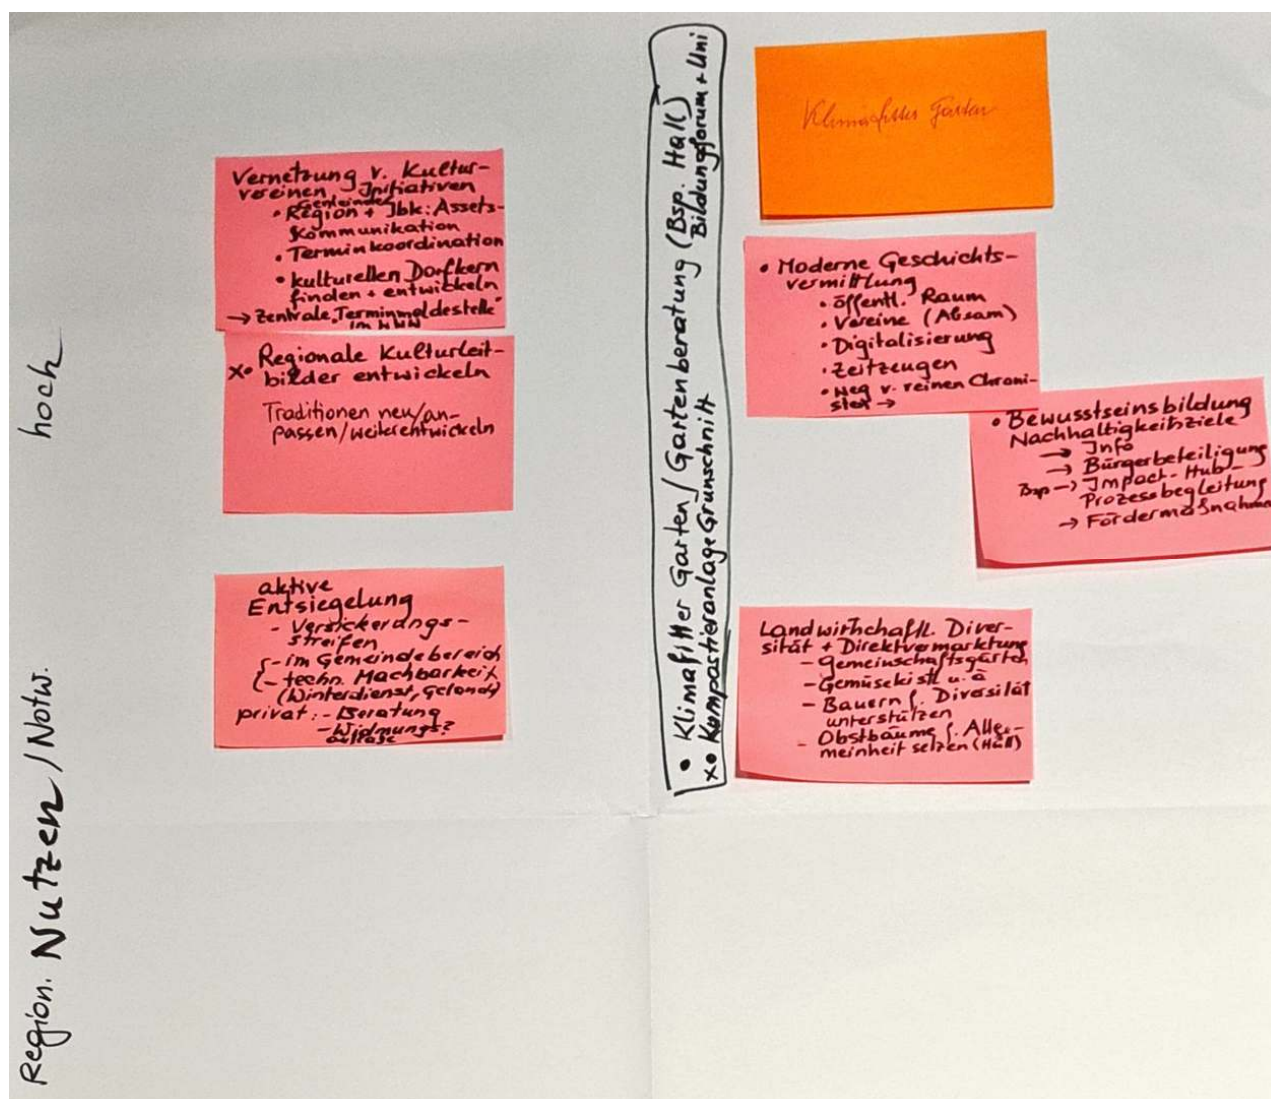 Region. Nutzen/Notw. hoch
Vernetzung v. Kultur-
vereinen Initiativen
Gemeinden
• Region + Ibk: Assets-
Kommunikation
• Terminkoordination
• kulturellen Dorfkern
finden + entwickeln
→ Zentrale „Terminmeldestelle"
im WWW
x• Regionale Kulturleit-
bilder entwickeln
Traditionen neu/an-
passen/weiterentwickeln
aktive
Entsiegelung
- Versickerungs-
streifen
- im Gemeindebereich
- techn. Machbarkeit
(Winterdienst, Gelände)
privat: - Beratung
- Widmungs?
• Klimafitter Garten/Gartenberatung (Bsp. Hall)
Bildungsforum + Uni
x• Kompostieranlage Grünschnitt
Klimafitter Garten
• Moderne Geschichts-
vermittlung
• öffentl. Raum
• Vereine (Absam)
• Digitalisierung
• Zeitzeugen
• Weg v. reinen Chroni-
sten →
• Bewusstseinsbildung
Nachhaltigkeitsziele
→ Info
→ Bürgerbeteiligung
Bsp → Impact-Hub
Prozessbegleitung
→ Fördermaßnahmen
Landwirtschaftl. Diver-
sität + Direktvermarktung
- Gemeinschaftsgärten
- Gemüsekistl u. ä
- Bauern f. Diversität
unterstützen
- Obstbäume f. Allge-
meinheit setzen (Hall)